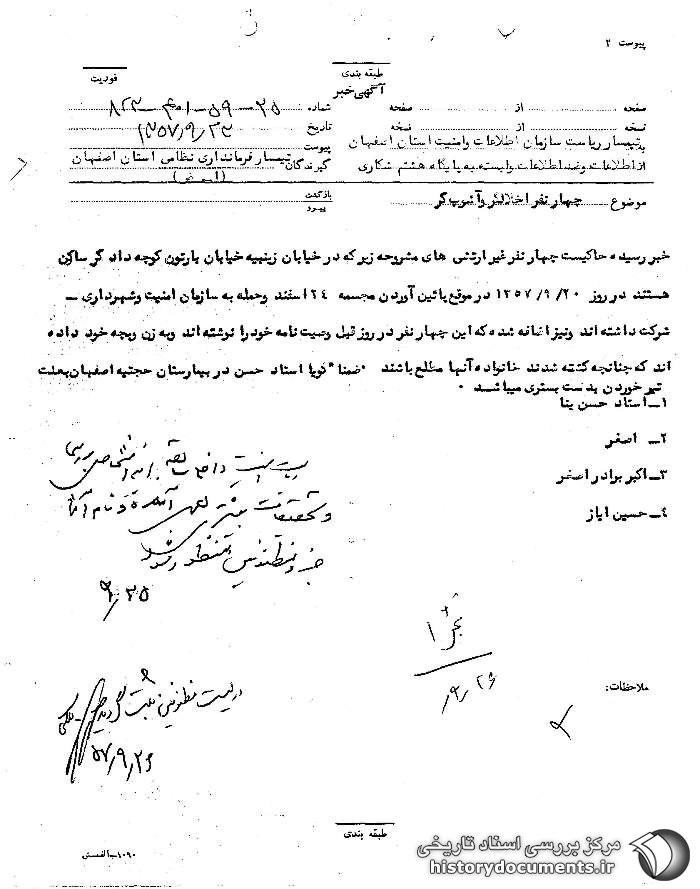 پیوست ۲
طبقه بندی
فوریت
آگهی خبر
صفحه از صفحه شماره ۲۵-۵۹-۴۰۱-۸۲۳
نسخه از نسخه تاریخ ۱۳۵۷/۹/۲۳
به تیمسار ریاست سازمان اطلاعات وامنیت استان اصفهان پیوست
از اطلاعات وضد اطلاعات وابسته به پایگاه هشتم شکاری گیرندگان تیمسار فرمانداری نظامی استان اصفهان
موضوع چهار نفر اخلالگر وآشوب گر بازگشت
پیرو
خبر رسیده حاکیست چهار نفر غیر ارتشی های مشروحه زیر که در خیابان زینبیه خیابان بارتون کوچه داد گر ساکن
هستند در روز ۱۳۵۷/۹/۲۰ در موقع پائین آوردن مجسمه ۲۴ اسفند وحمله به سازمان امنیت وشهرداری ــ
شرکت داشته اند ونیز اضافه شده که این چهار نفر در روز قبل وصیت نامه خود را نوشته اند وبه زن وبچه خود داده
اند که چنانچه کشته شدند خانواده آنها مطلع باشند ۰ ضمنا" گویا استاد حسن در بیمارستان حجتیه اصفهان بعلت
تیر خوردن بدست بستری میباشد ۰
۱ــ استاد حسن بنا
۲ــ اصغر
۳ــ اکبر برادر اصغر
۴ــ حسین ایاز
وتحقیقات بیشتری بعمل آمده و نام آنها
جزو مظنونین منظور شود
۹/۲۵
۹/۲۶
ملاحظات:
در لیست مظنونین ثبت گردید
۵۷/۹/۲۶
طبقه بندی
۱۰۹۰
مرکز بررسی اسناد تاریخی
historydocuments.ir